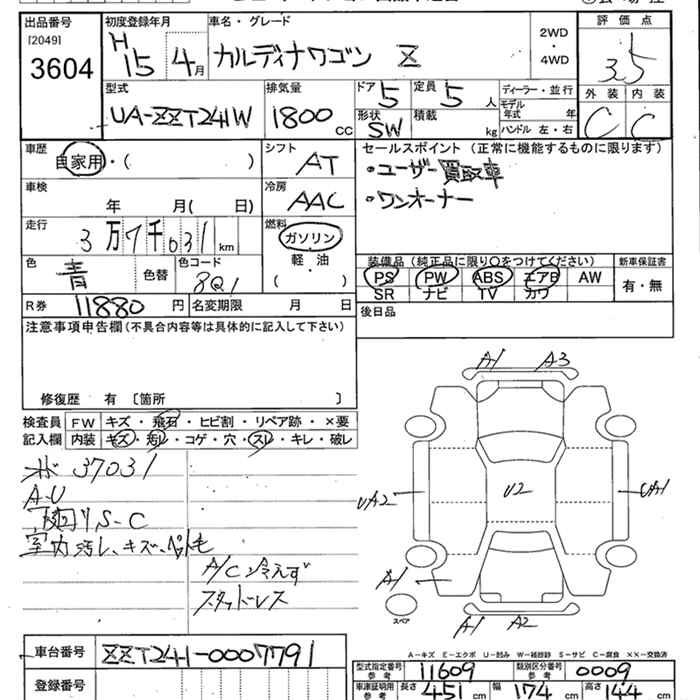 出品番号 初度登録年月 車名・グレード 評価点
[2049]
3604 H15 4月 カルディナワゴン Z 2WD・4WD 3.5
型式 排気量 ドア 定員 ディーラー・並行 外装 内装
UA-ZZT241W 1800CC 5 5人 モデル年式 年 C C
形状 SW 積載 kg ハンドル 左・右
車歴 シフト セールスポイント (正常に機能するものに限ります)
自家用・( ) AT ・ユーザー買取車
車検 冷房 ・ワンオーナー
年 月( 日) AAC
走行 燃料
3万7千031km ガソリン
軽・油
( )
装備品 (純正品に限り○をつけてください) 新車保証書
色 青 色替 色コード 8Q1 PS PW ABS エアB AW 有・無
SR ナビ TV カワ
R券 11880円 名変期限 月 日 後日品
注意事項申告欄(不具合内容等は具体的に記入して下さい)
修復歴 有 〔箇所 〕
検査員 FW キズ・飛石・ヒビ割・リペア跡・×要
記入欄 内装 キズ・汚レ・コゲ・穴・スレ・キレ・破レ
37031
A-U
下回りS-C
室内汚レ、キズ、ペット毛
A/C冷えず
スタッドレス
A1 A3
UA2 U2 UA1
A1
スペア
A1 A2
A-キズ E-エクボ U-凹み W-補修跡 S-サビ C-腐食 ××-交換済
車台番号 ZZT241-0007791
型式指定番号 参考 11609 類別区分番号 参考 0009
登録番号 車庫証明用 参考 長さ 451cm 幅 174cm 高さ 144cm